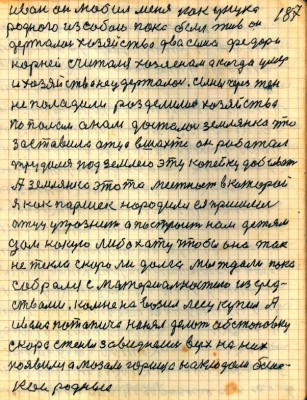 иван он любил меня как унука 187
родного из собою пока был жив он
держали хозяйство два сына федор и
корней считали хозяеном а когда умер
и хозяйство неудержалос. сыны через жен
не поладили розделили хозяйства
по полам а нам досталос землянка это
заставило отца в шахте он работал
трудился под землею эту копейку добиват
А землянка эта та летност в которой
я как париек народился пришли
отцу угрознит а построит нам детям
дом какую либо хату чтобы она так
не текла скоро ли долга мы ждали пока
собрали с материалностю из сред-
ствами. камне навозил лесу купил А
ивана потапича нанял делат обстоновку
скора стены завиднели верх на них
появился мазали горища накладали бли-
кои родные